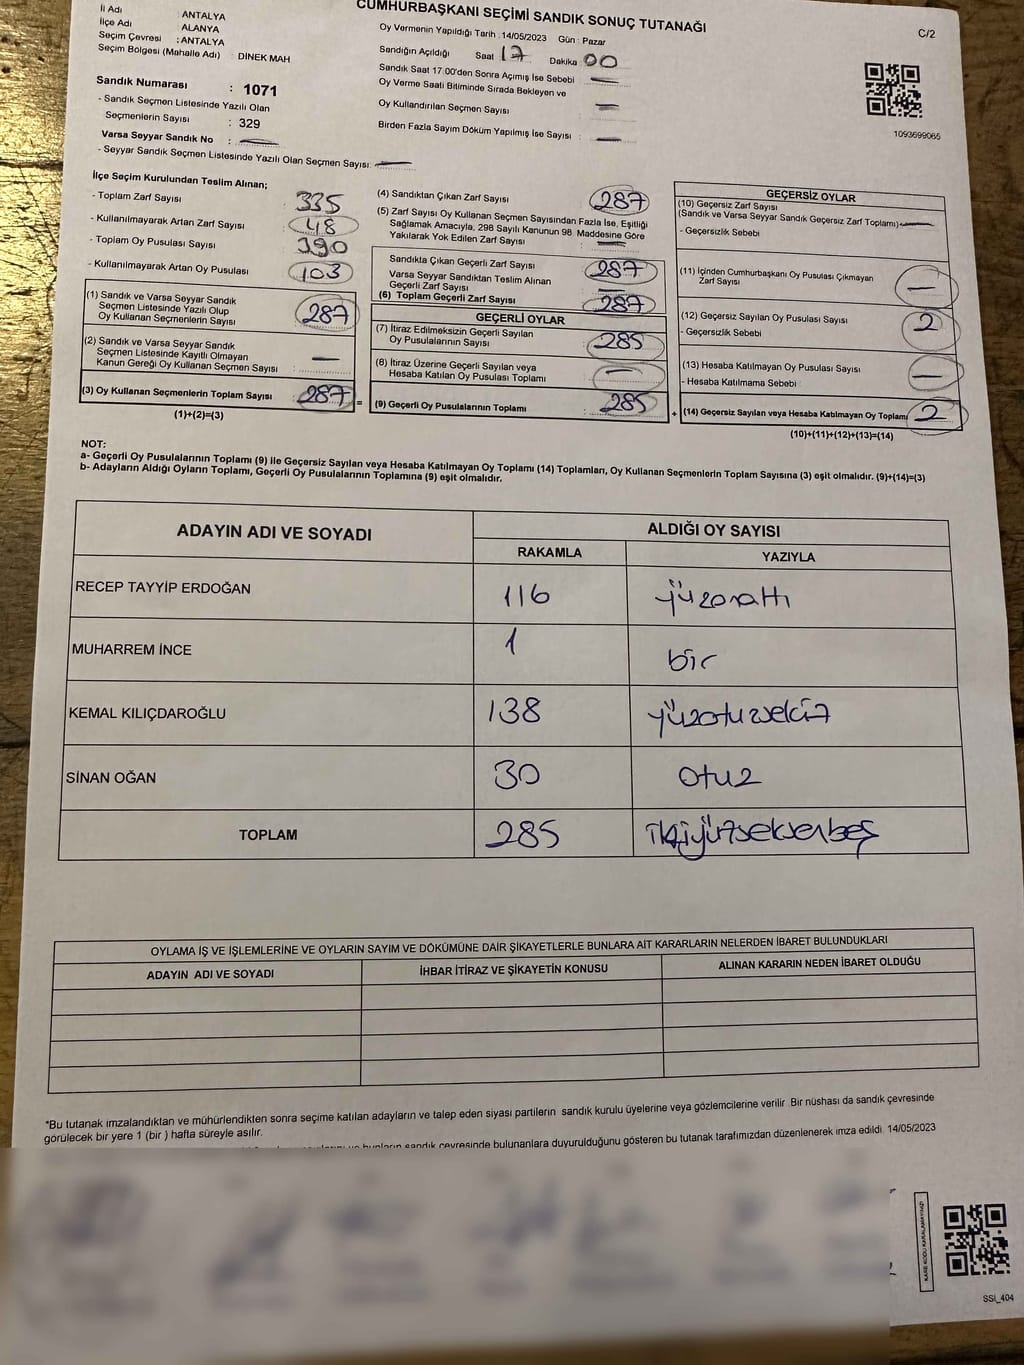 CUMHURBAŞKANI SEÇİMİ SANDIK SONUÇ TUTANAĞI
C/2
İl Adı : ANTALYA
İlçe Adı : ALANYA
Seçim Çevresi : ANTALYA
Seçim Bölgesi (Mahalle Adı) : DİNEK MAH
Sandık Numarası : 1071
- Sandık Seçmen Listesinde Yazılı Olan
Seçmenlerin Sayısı : 329
Varsa Seyyar Sandık No : —
- Seyyar Sandık Seçmen Listesinde Yazılı Olan Seçmen Sayısı: —
Oy Vermenin Yapıldığı Tarih : 14/05/2023 Gün : Pazar
Sandığın Açıldığı Saat 17 Dakika 00
Sandık Saat 17:00'den Sonra Açmış İse Sebebi —
Oy Verme Saati Bitiminde Sırada Bekleyen ve
Oy Kullandırılan Seçmen Sayısı —
Birden Fazla Sayım Döküm Yapılmış İse Sayısı : —
1093699065
İlçe Seçim Kurulundan Teslim Alınan;
- Toplam Zarf Sayısı 335
- Kullanılmayarak Artan Zarf Sayısı 48
- Toplam Oy Pusulası Sayısı 390
- Kullanılmayarak Artan Oy Pusulası 103
(1) Sandık ve Varsa Seyyar Sandık
Seçmen Listesinde Yazılı Olup
Oy Kullanan Seçmenlerin Sayısı 287
(2) Sandık ve Varsa Seyyar Sandık
Seçmen Listesinde Kayıtlı Olmayan
Kanun Gereği Oy Kullanan Seçmen Sayısı : —
(3) Oy Kullanan Seçmenlerin Toplam Sayısı : 287 =
(1)+(2)=(3)
(4) Sandıktan Çıkan Zarf Sayısı 287
(5) Zarf Sayısı Oy Kullanan Seçmen Sayısından Fazla İse, Eşitliği
Sağlamak Amacıyla, 298 Sayılı Kanunun 98. Maddesine Göre
Yakılarak Yok Edilen Zarf Sayısı —
Sandıkta Çıkan Geçerli Zarf Sayısı 287
Varsa Seyyar Sandıktan Teslim Alınan
Geçerli Zarf Sayısı —
(6) Toplam Geçerli Zarf Sayısı 287
GEÇERLİ OYLAR
(7) İtiraz Edilmeksizin Geçerli Sayılan
Oy Pusulalarının Sayısı 285
(8) İtiraz Üzerine Geçerli Sayılan veya
Hesaba Katılan Oy Pusulası Toplamı —
(9) Geçerli Oy Pusulalarının Toplamı : 285 +
GEÇERSİZ OYLAR
(10) Geçersiz Zarf Sayısı
(Sandık ve Varsa Seyyar Sandık Geçersiz Zarf Toplamı) —
- Geçersizlik Sebebi
(11) İçinden Cumhurbaşkanı Oy Pusulası Çıkmayan
Zarf Sayısı —
(12) Geçersiz Sayılan Oy Pusulası Sayısı 2
- Geçersizlik Sebebi
(13) Hesaba Katılmayan Oy Pusulası Sayısı —
- Hesaba Katılmama Sebebi
(14) Geçersiz Sayılan veya Hesaba Katılmayan Oy Toplamı 2
(10)+(11)+(12)+(13)=(14)
NOT:
a- Geçerli Oy Pusulalarının Toplamı (9) ile Geçersiz Sayılan veya Hesaba Katılmayan Oy Toplamı (14) Toplamları, Oy Kullanan Seçmenlerin Toplam Sayısına (3) eşit olmalıdır. (9)+(14)=(3)
b- Adayların Aldığı Oyların Toplamı, Geçerli Oy Pusulalarının Toplamına (9) eşit olmalıdır.
ADAYIN ADI VE SOYADI ALDIĞI OY SAYISI
RAKAMLA YAZIYLA
RECEP TAYYİP ERDOĞAN 116 yüzonaltı
MUHARREM İNCE 1 bir
KEMAL KILIÇDAROĞLU 138 yüzotuzsekiz
SİNAN OĞAN 30 otuz
TOPLAM 285 ikiyüzseksenbeş
OYLAMA İŞ VE İŞLEMLERİNE VE OYLARIN SAYIM VE DÖKÜMÜNE DAİR ŞİKAYETLERLE BUNLARA AİT KARARLARIN NELERDEN İBARET BULUNDUKLARI
ADAYIN ADI VE SOYADI İHBAR İTİRAZ VE ŞİKAYETİN KONUSU ALINAN KARARIN NEDEN İBARET OLDUĞU
*Bu tutanak imzalandıktan ve mühürlendikten sonra seçime katılan adayların ve talep eden siyasi partilerin sandık kurulu üyelerine veya gözlemcilerine verilir. Bir nüshası da sandık çevresinde
görülecek bir yere 1 (bir) hafta süreyle asılır.
sandık çevresinde bulunanlara duyurulduğunu gösteren bu tutanak tarafımızdan düzenlenerek imza edildi. 14/05/2023
KARE KODU KARALAMAYINIZ!
SSI_404